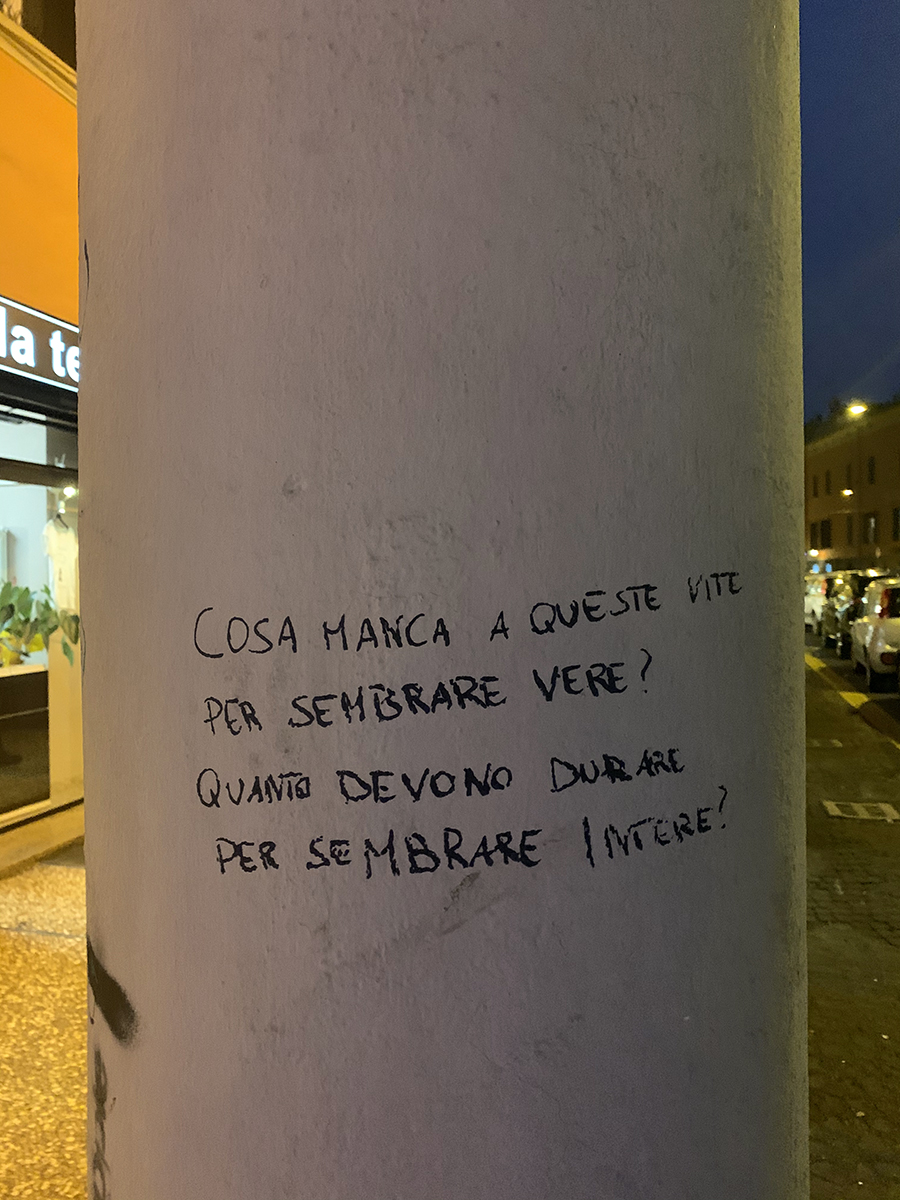 la te
COSA MANCA A QUESTE VITE
PER SEMBRARE VERE?
QUANTO DEVONO DURARE
PER SEMBRARE INTERE?